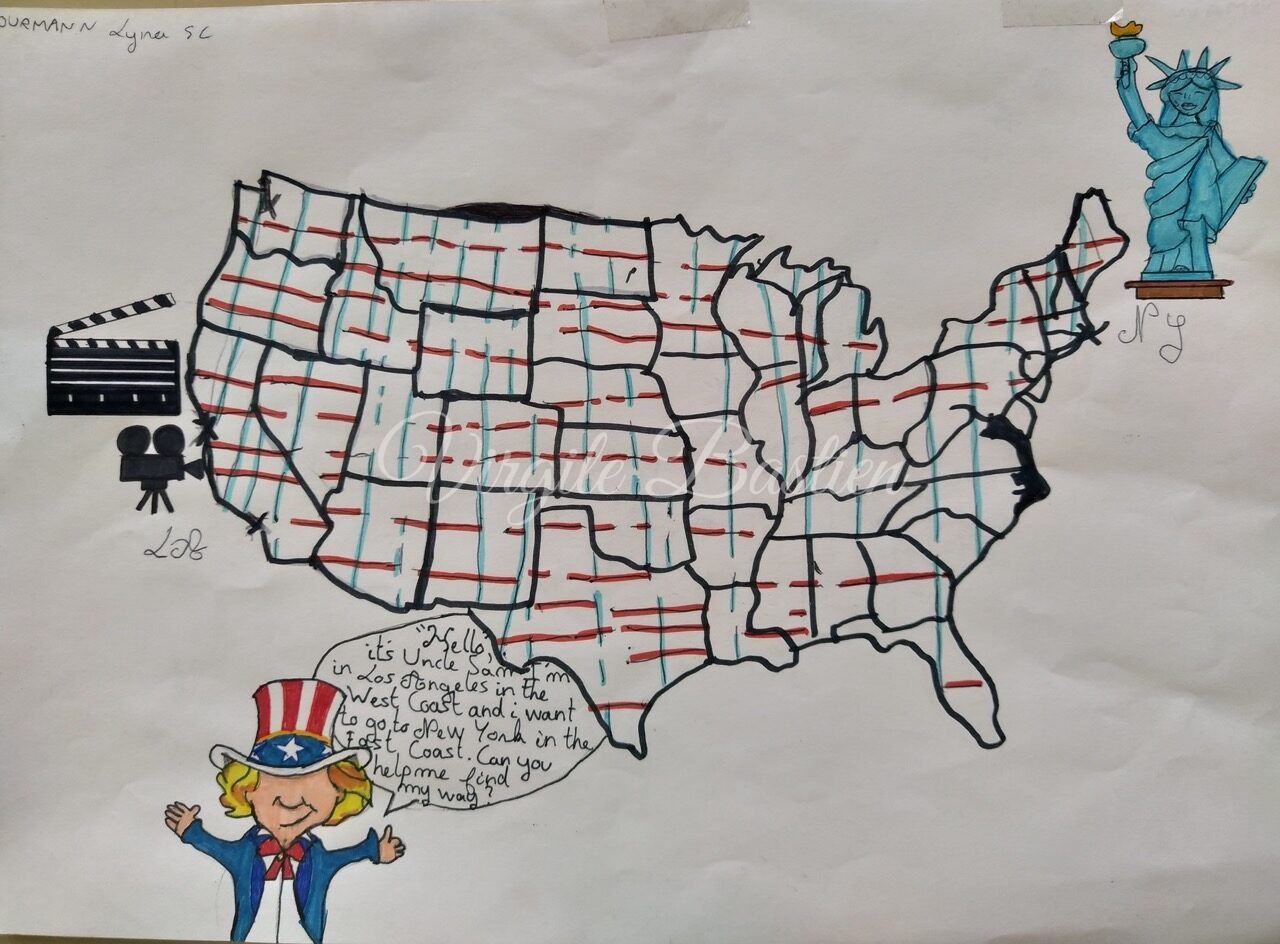 Lyna 5C
NY
Virgile Bastien
"Hello,
its Uncle Sam I'm
in Los Angeles in the
West Coast and i want
to go to New York in the
East Coast. Can you
help me find
my way?